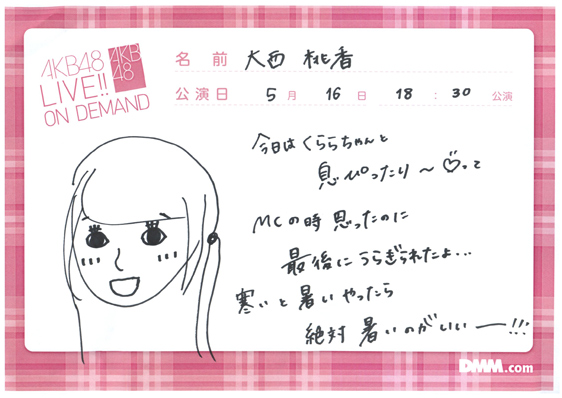 AKB48
LIVE!!
ON DEMAND
AKB
48
名前 大西 桃香
公演日 5月 16日 18:30 公演
今日はくららちゃんと
息ぴったり～♡って
MCの時 思ったのに
最後にうらぎられたよ...
寒いと暑いやったら
絶対 暑いのがいいー!!!
DMM.com